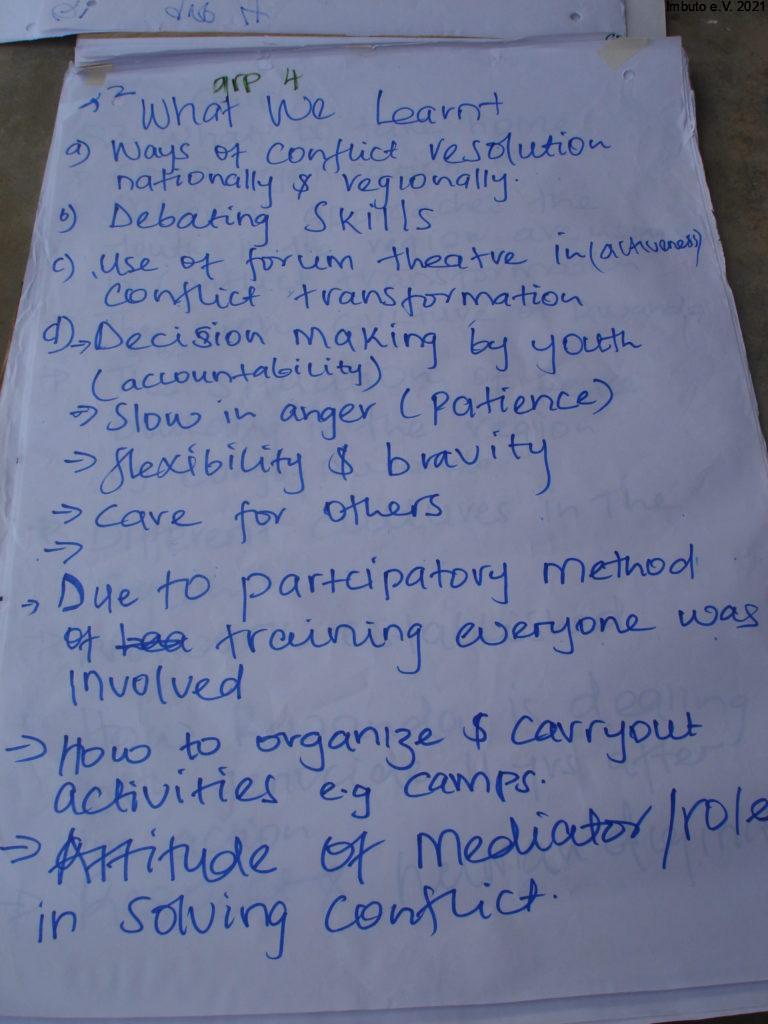 Imbuto e.V. 2021
grp 4
→ 2 What We Learnt
a) Ways of conflict resolution
nationally & regionally.
b) Debating Skills
c) Use of forum theatre in (activeness)
conflict transformation
d) → Decision making by youth
(accountability)
→ Slow in anger (Patience)
→ flexibility & bravity
→ Care for others
→
→ Due to partcipatory method
of training everyone was
involved
→ How to organize & carryout
activities e.g camps.
→ Attitude of Mediator/role
in solving conflict.